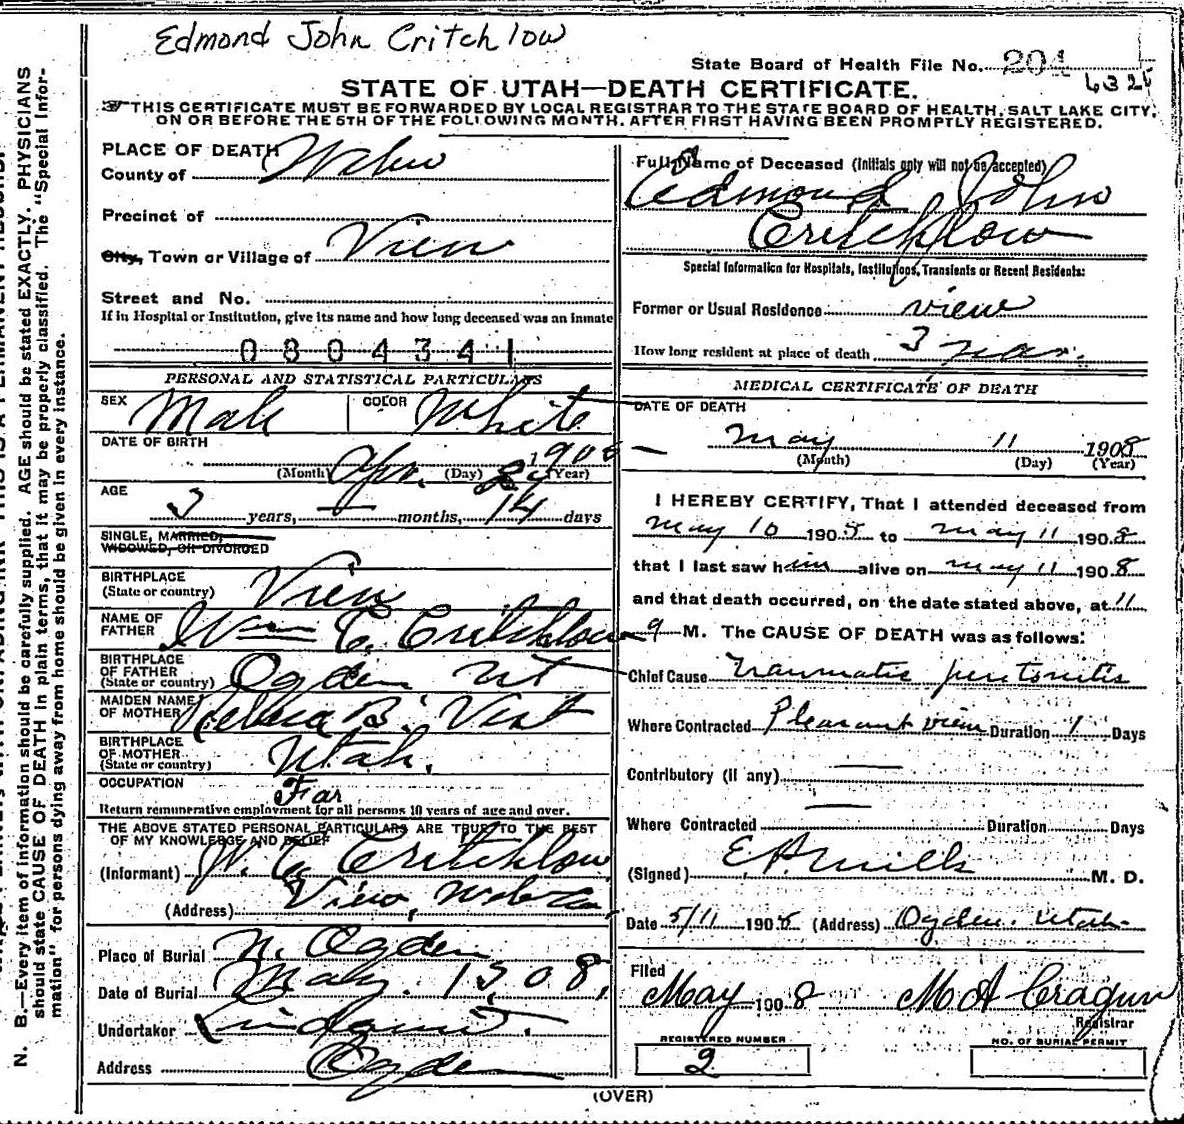 Edmond John Critchlow
State Board of Health File No. 204
6325
STATE OF UTAH—DEATH CERTIFICATE.
THIS CERTIFICATE MUST BE FORWARDED BY LOCAL REGISTRAR TO THE STATE BOARD OF HEALTH, SALT LAKE CITY,
ON OR BEFORE THE 5TH OF THE FOLLOWING MONTH, AFTER FIRST HAVING BEEN PROMPTLY REGISTERED.
PLACE OF DEATH
County of Weber
Precinct of
City, Town or Village of View
Street and No.
If in Hospital or Institution, give its name and how long deceased was an inmate
0804341
PERSONAL AND STATISTICAL PARTICULARS
SEX Male COLOR White
DATE OF BIRTH
(Month) Apr. (Day) (Year) 1905
AGE
3 years, — months, 14 days
SINGLE, MARRIED,
WIDOWED, OR DIVORCED
BIRTHPLACE
(State or country) View
NAME OF
FATHER Wm C. Critchlow
BIRTHPLACE
OF FATHER
(State or country) Ogden Ut
MAIDEN NAME
OF MOTHER B. West
BIRTHPLACE
OF MOTHER
(State or country) Utah.
OCCUPATION
Return remunerative employment for all persons 10 years of age and over.
THE ABOVE STATED PERSONAL PARTICULARS ARE TRUE TO THE BEST
OF MY KNOWLEDGE AND BELIEF
(Informant) W. C. Critchlow
(Address) View, Weber Co.
Place of Burial N. Ogden
Date of Burial May. 1908,
Undertaker
Address Ogden
Full Name of Deceased (Initials only will not be accepted)
Edmond John
Critchlow
Special Information for Hospitals, Institutions, Transients or Recent Residents:
Former or Usual Residence view
How long resident at place of death 3 year.
MEDICAL CERTIFICATE OF DEATH
DATE OF DEATH
May 11 1908
(Month) (Day) (Year)
I HEREBY CERTIFY, That I attended deceased from
May 10 1908 to May 11 1908
that I last saw him alive on May 11 1908
and that death occurred, on the date stated above, at 11
M. The CAUSE OF DEATH was as follows:
Chief Cause Traumatic peritonitis
Where Contracted Pleasant view Duration 1 Days
Contributory (if any)
Where Contracted Duration Days
(Signed) E. P. Mills M. D.
Date 5/11 1908 (Address) Ogden. Utah
Filed
May 1908 M A Cragun
Registrar
REGISTERED NUMBER
2
NO. OF BURIAL PERMIT
(OVER)
N. B.—Every item of information should be carefully supplied. AGE should be stated EXACTLY. PHYSICIANS
should state CAUSE OF DEATH in plain terms, that it may be properly classified. The "Special Infor-
mation" for persons dying away from home should be given in every instance.